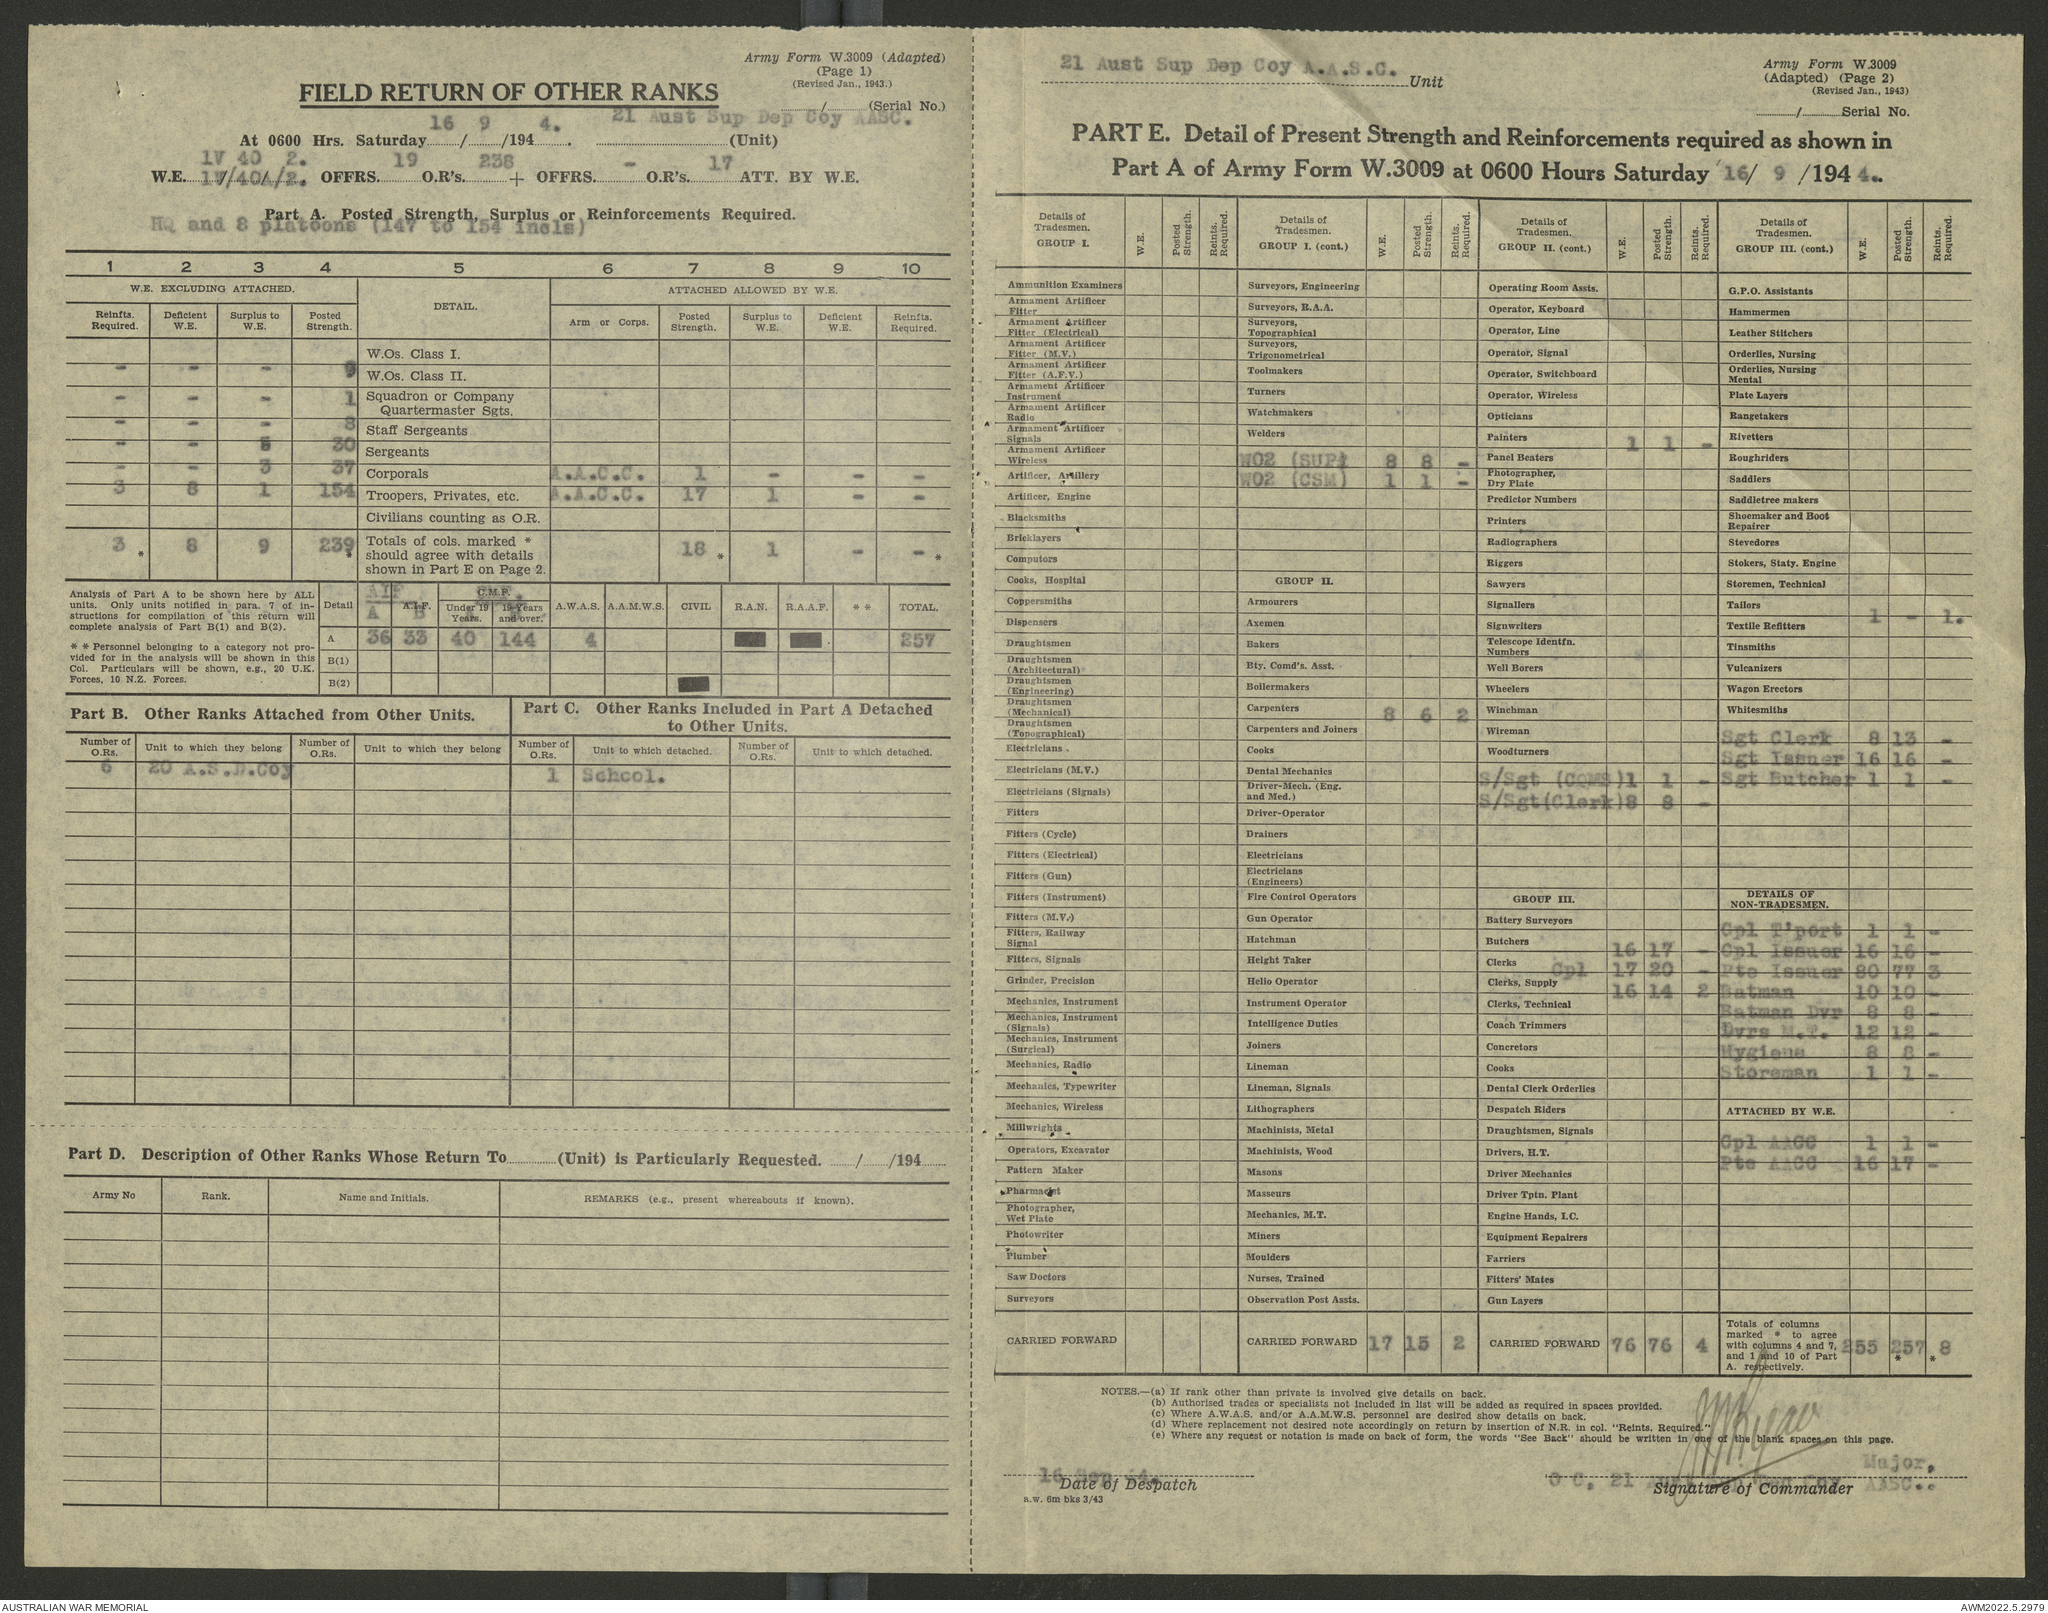 Army Form W.3009 (Adapted)
(Page 1)
(Revised Jan., 1943.)
FIELD RETURN OF OTHER RANKS
......../........(Serial No.)
At 0600 Hrs. Saturday 16 / 9 /194 4. 21 Aust Sup Dep Coy AASC. (Unit)
1V 40 2.
W.E. 1V/40A/2. OFFRS. 19 O.R's. 238 + OFFRS. - O.R's. 17 ATT. BY W.E.
Part A. Posted Strength, Surplus or Reinforcements Required.
HQ and 8 platoons (147 to 154 incls)
1 2 3 4 5 6 7 8 9 10
W.E. EXCLUDING ATTACHED. DETAIL. ATTACHED ALLOWED BY W.E.
Reinfts. Required. Deficient W.E. Surplus to W.E. Posted Strength. Arm or Corps. Posted Strength. Surplus to W.E. Deficient W.E. Reinfts. Required.
W.Os. Class I.
- - - 9 W.Os. Class II.
- - - 1 Squadron or Company Quartermaster Sgts.
- - - 8 Staff Sergeants
- - 5 30 Sergeants
- - 3 37 Corporals A.A.C.C. 1 - - -
3 8 1 154 Troopers, Privates, etc. A.A.C.C. 17 1 - -
Civilians counting as O.R.
3 * 8 9 239 * Totals of cols. marked * should agree with details shown in Part E on Page 2. 18 * 1 - - *
Analysis of Part A to be shown here by ALL units. Only units notified in para. 7 of instructions for compilation of this return will complete analysis of Part B(1) and B(2).
* * Personnel belonging to a category not provided for in the analysis will be shown in this Col. Particulars will be shown, e.g., 20 U.K. Forces, 10 N.Z. Forces.
Detail AIF A A.I.F. B C.M.F. Under 19 Years. A 19 Years and over. B A.W.A.S. A.A.M.W.S. CIVIL R.A.N. R.A.A.F. * * TOTAL.
A 36 33 40 144 4 257
B(1)
B(2)
Part B. Other Ranks Attached from Other Units.
Part C. Other Ranks Included in Part A Detached to Other Units.
Number of O.Rs. Unit to which they belong Number of O.Rs. Unit to which they belong Number of O.Rs. Unit to which detached. Number of O.Rs. Unit to which detached.
6 20 A.S.D.Coy 1 School.
Part D. Description of Other Ranks Whose Return To............(Unit) is Particularly Requested. ....../....../194......
Army No Rank. Name and Initials. REMARKS (e.g., present whereabouts if known).
21 Aust Sup Dep Coy A.A.S.C. Unit
Army Form W.3009
(Adapted) (Page 2)
(Revised Jan., 1943)
........../..........Serial No.
PART E. Detail of Present Strength and Reinforcements required as shown in
Part A of Army Form W.3009 at 0600 Hours Saturday 16/ 9 /194 4.
Details of Tradesmen. GROUP I. W.E. Posted Strength. Reints. Required.
Ammunition Examiners
Armament Artificer Fitter
Armament Artificer Fitter (Electrical)
Armament Artificer Fitter (M.V.)
Armament Artificer Fitter (A.F.V.)
Armament Artificer Instrument
Armament Artificer Radio
Armament Artificer Signals
Armament Artificer Wireless
Artificer, Artillery
Artificer, Engine
Blacksmiths
Bricklayers
Computors
Cooks, Hospital
Coppersmiths
Dispensers
Draughtsmen
Draughtsmen (Architectural)
Draughtsmen (Engineering)
Draughtsmen (Mechanical)
Draughtsmen (Topographical)
Electricians
Electricians (M.V.)
Electricians (Signals)
Fitters
Fitters (Cycle)
Fitters (Electrical)
Fitters (Gun)
Fitters (Instrument)
Fitters (M.V.)
Fitters, Railway Signal
Fitters, Signals
Grinder, Precision
Mechanics, Instrument
Mechanics, Instrument (Signals)
Mechanics, Instrument (Surgical)
Mechanics, Radio
Mechanics, Typewriter
Mechanics, Wireless
Millwrights
Operators, Excavator
Pattern Maker
Pharmacist
Photographer, Wet Plate
Photowriter
Plumber
Saw Doctors
Surveyors
CARRIED FORWARD
Details of Tradesmen. GROUP I. (cont.) W.E. Posted Strength. Reints. Required.
Surveyors, Engineering
Surveyors, R.A.A.
Surveyors, Topographical
Surveyors, Trigonometrical
Toolmakers
Turners
Watchmakers
Welders
WO2 (SUP) 8 8 -
WO2 (CSM) 1 1 -
GROUP II.
Armourers
Axemen
Bakers
Bty. Comd's. Asst.
Boilermakers
Carpenters 8 6 2
Carpenters and Joiners
Cooks
Dental Mechanics
Driver-Mech. (Eng. and Med.)
Driver-Operator
Drainers
Electricians
Electricians (Engineers)
Fire Control Operators
Gun Operator
Hatchman
Height Taker
Helio Operator
Instrument Operator
Intelligence Duties
Joiners
Lineman
Lineman, Signals
Lithographers
Machinists, Metal
Machinists, Wood
Masons
Masseurs
Mechanics, M.T.
Miners
Moulders
Nurses, Trained
Observation Post Assts.
CARRIED FORWARD 17 15 2
Details of Tradesmen. GROUP II. (cont.) W.E. Posted Strength. Reints Required.
Operating Room Assts.
Operator, Keyboard
Operator, Line
Operator, Signal
Operator, Switchboard
Operator, Wireless
Opticians
Painters 1 1 -
Panel Beaters
Photographer, Dry Plate
Predictor Numbers
Printers
Radiographers
Riggers
Sawyers
Signallers
Signwriters
Telescope Identfn. Numbers
Well Borers
Wheelers
Winchman
Wireman
Woodturners
S/Sgt (CQMS) 1 1 -
S/Sgt(Clerk) 8 8 -
GROUP III.
Battery Surveyors
Butchers 16 17 -
Clerks Cpl 17 20 -
Clerks, Supply 16 14 2
Clerks, Technical
Coach Trimmers
Concretors
Cooks
Dental Clerk Orderlies
Despatch Riders
Draughtsmen, Signals
Drivers, H.T.
Driver Mechanics
Driver Tptn. Plant
Engine Hands, I.C.
Equipment Repairers
Farriers
Fitters' Mates
Gun Layers
CARRIED FORWARD 76 76 4
Details of Tradesmen. GROUP III. (cont.) W.E. Posted Strength. Reints. Required.
G.P.O. Assistants
Hammermen
Leather Stitchers
Orderlies, Nursing
Orderlies, Nursing Mental
Plate Layers
Rangetakers
Rivetters
Roughriders
Saddlers
Saddletree makers
Shoemaker and Boot Repairer
Stevedores
Stokers, Staty. Engine
Storemen, Technical
Tailors 1 - 1.
Textile Refitters
Tinsmiths
Vulcanizers
Wagon Erectors
Whitesmiths
Sgt Clerk 8 13 -
Sgt Issuer 16 16 -
Sgt Butcher 1 1 -
DETAILS OF NON-TRADESMEN.
Cpl T'port 1 1 -
Cpl Issuer 16 16 -
Pte Issuer 80 77 3
Batman 10 10 -
Batman Dvr 8 8 -
Dvrs M.T. 12 12 -
Hygiene 8 8 -
Storeman 1 1 -
ATTACHED BY W.E.
Cpl AACC 1 1 -
Pte AACC 16 17 -
Totals of columns marked * to agree with columns 4 and 7, and 1 and 10 of Part A. respectively. 255 257 * 8 *
NOTES.—(a) If rank other than private is involved give details on back.
(b) Authorised trades or specialists not included in list will be added as required in spaces provided.
(c) Where A.W.A.S. and/or A.A.M.W.S. personnel are desired show details on back.
(d) Where replacement not desired note accordingly on return by insertion of N.R. in col. "Reints. Required."
(e) Where any request or notation is made on back of form, the words "See Back" should be written in one of the blank spaces on this page.
16 Sep 44.
Date of Despatch
a.w. 6m bks 3/43
Major,
O C, 21 Aust Sup Dep Coy AASC.
Signature of Commander
AUSTRALIAN WAR MEMORIAL
AWM2022.5.2979